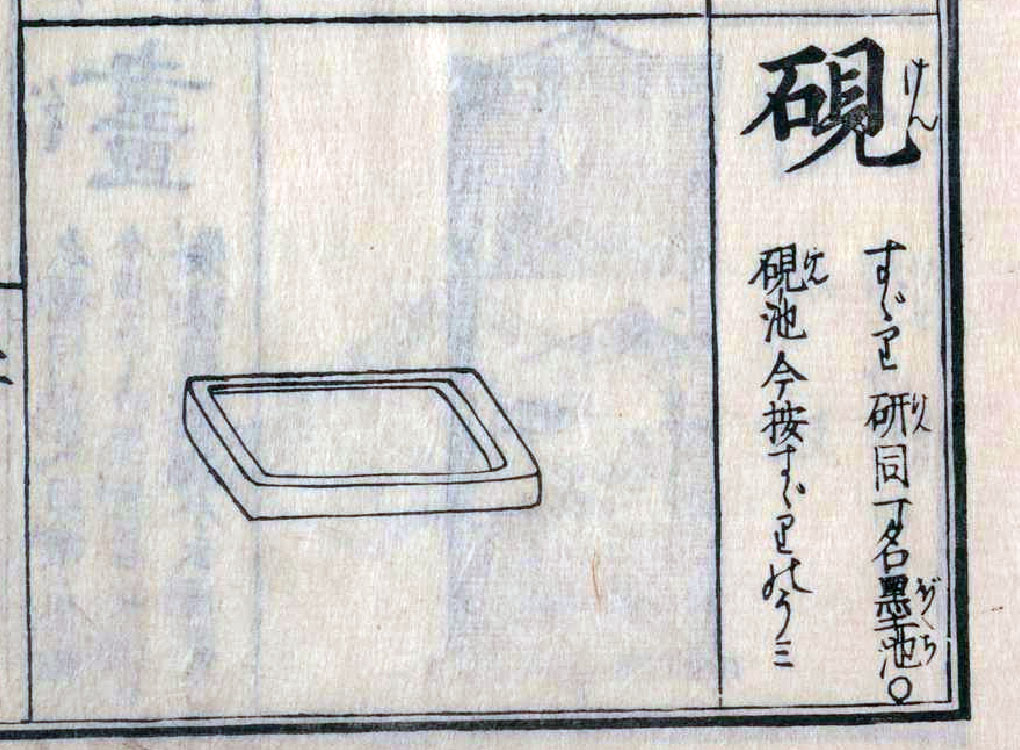 硯
けん
すゞり 研同一名墨池○
けん
ぼくち
硯池今按すゞりのうミ
けん